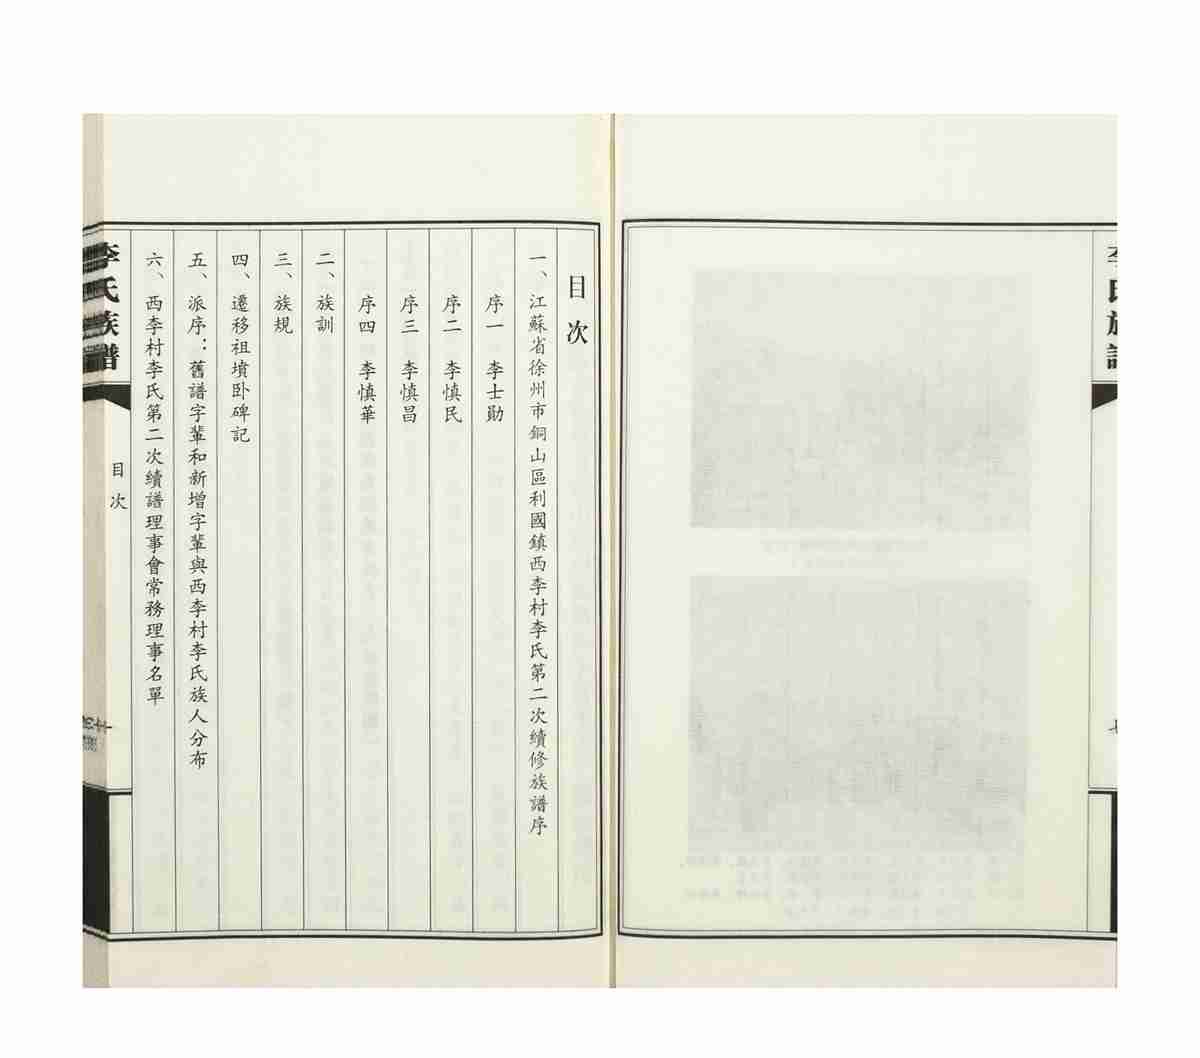 李氏族譜
目次
一、江蘇省徐州市銅山區利國鎮西李村李氏第二次續修族譜序
序一 李士勛
序二 李慎民
序三 李慎昌
序四 李慎華
二、族訓
三、族規
四、遷移祖墳卧碑記
五、派序：舊譜字輩和新增字輩與西李村李氏族人分布
六、西李村李氏第二次續譜理事會常務理事名單
李氏族譜
目次